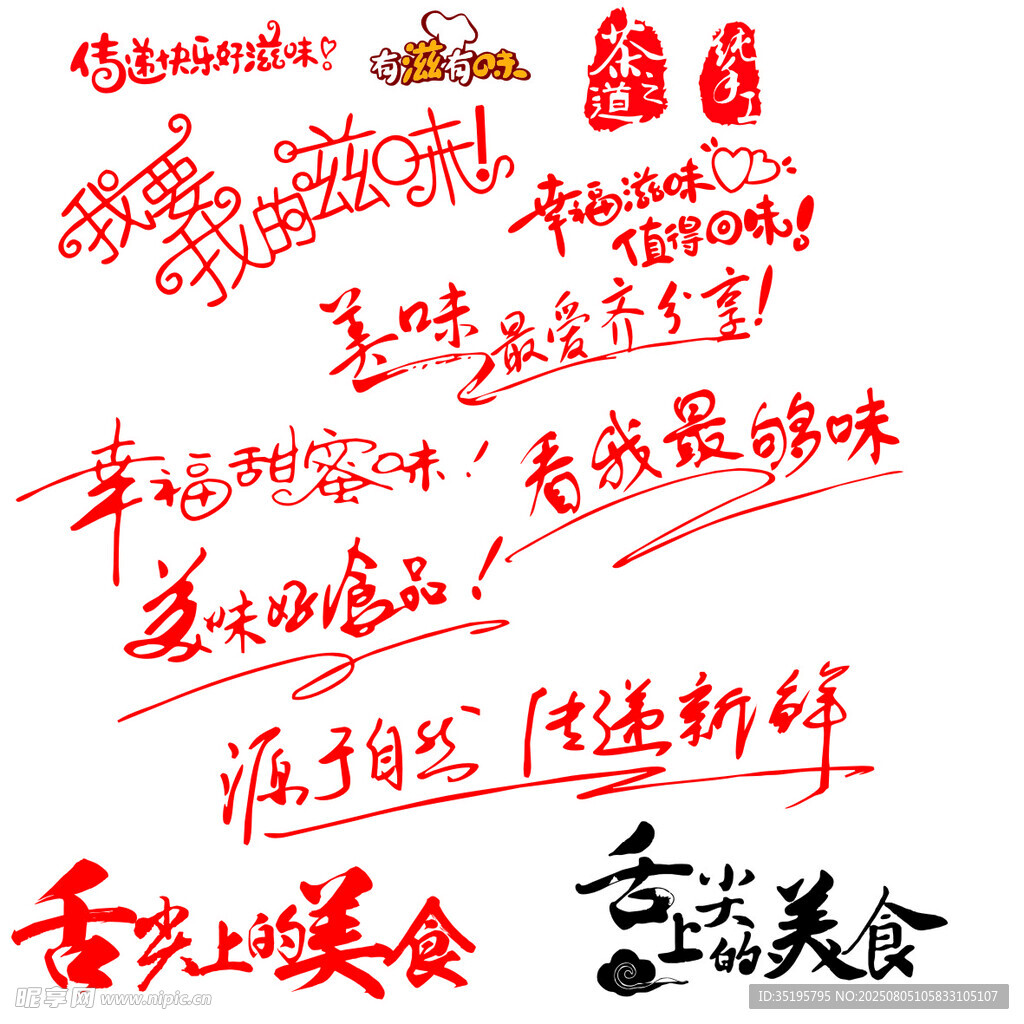 传递快乐好滋味!
有滋有味
茶之道
纯手工
我要我的滋味!
幸福滋味
值得回味!
美味最爱齐分享!
幸福甜蜜味!
看我最够味
美味好食品!
源于自然 传递新鲜
舌尖上的美食
舌尖上的美食
昵享网 www.nipic.cn
ID:35195795 NO:20250805105833105107